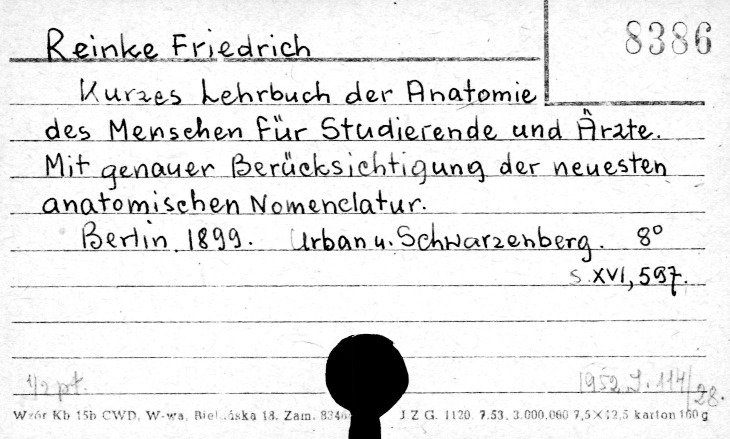 8386
Reinke Friedrich
Kurzes Lehrbuch der Anatomie
des Menschen für Studierende und Ärzte.
Mit genauer Berücksichtigung der neuesten
anatomischen Nomenclatur.
Berlin 1899. Urban u. Schwarzenberg. 8°
S. XVI, 597.
1/2 pt.
1952. J. 114/28.
Wzór Kb 15b CWD, W-wa, Biel áska 18. Zam. 8346 J Z G. 1120. 7.53. 3.000.000 7,5×12,5 karton 160 g